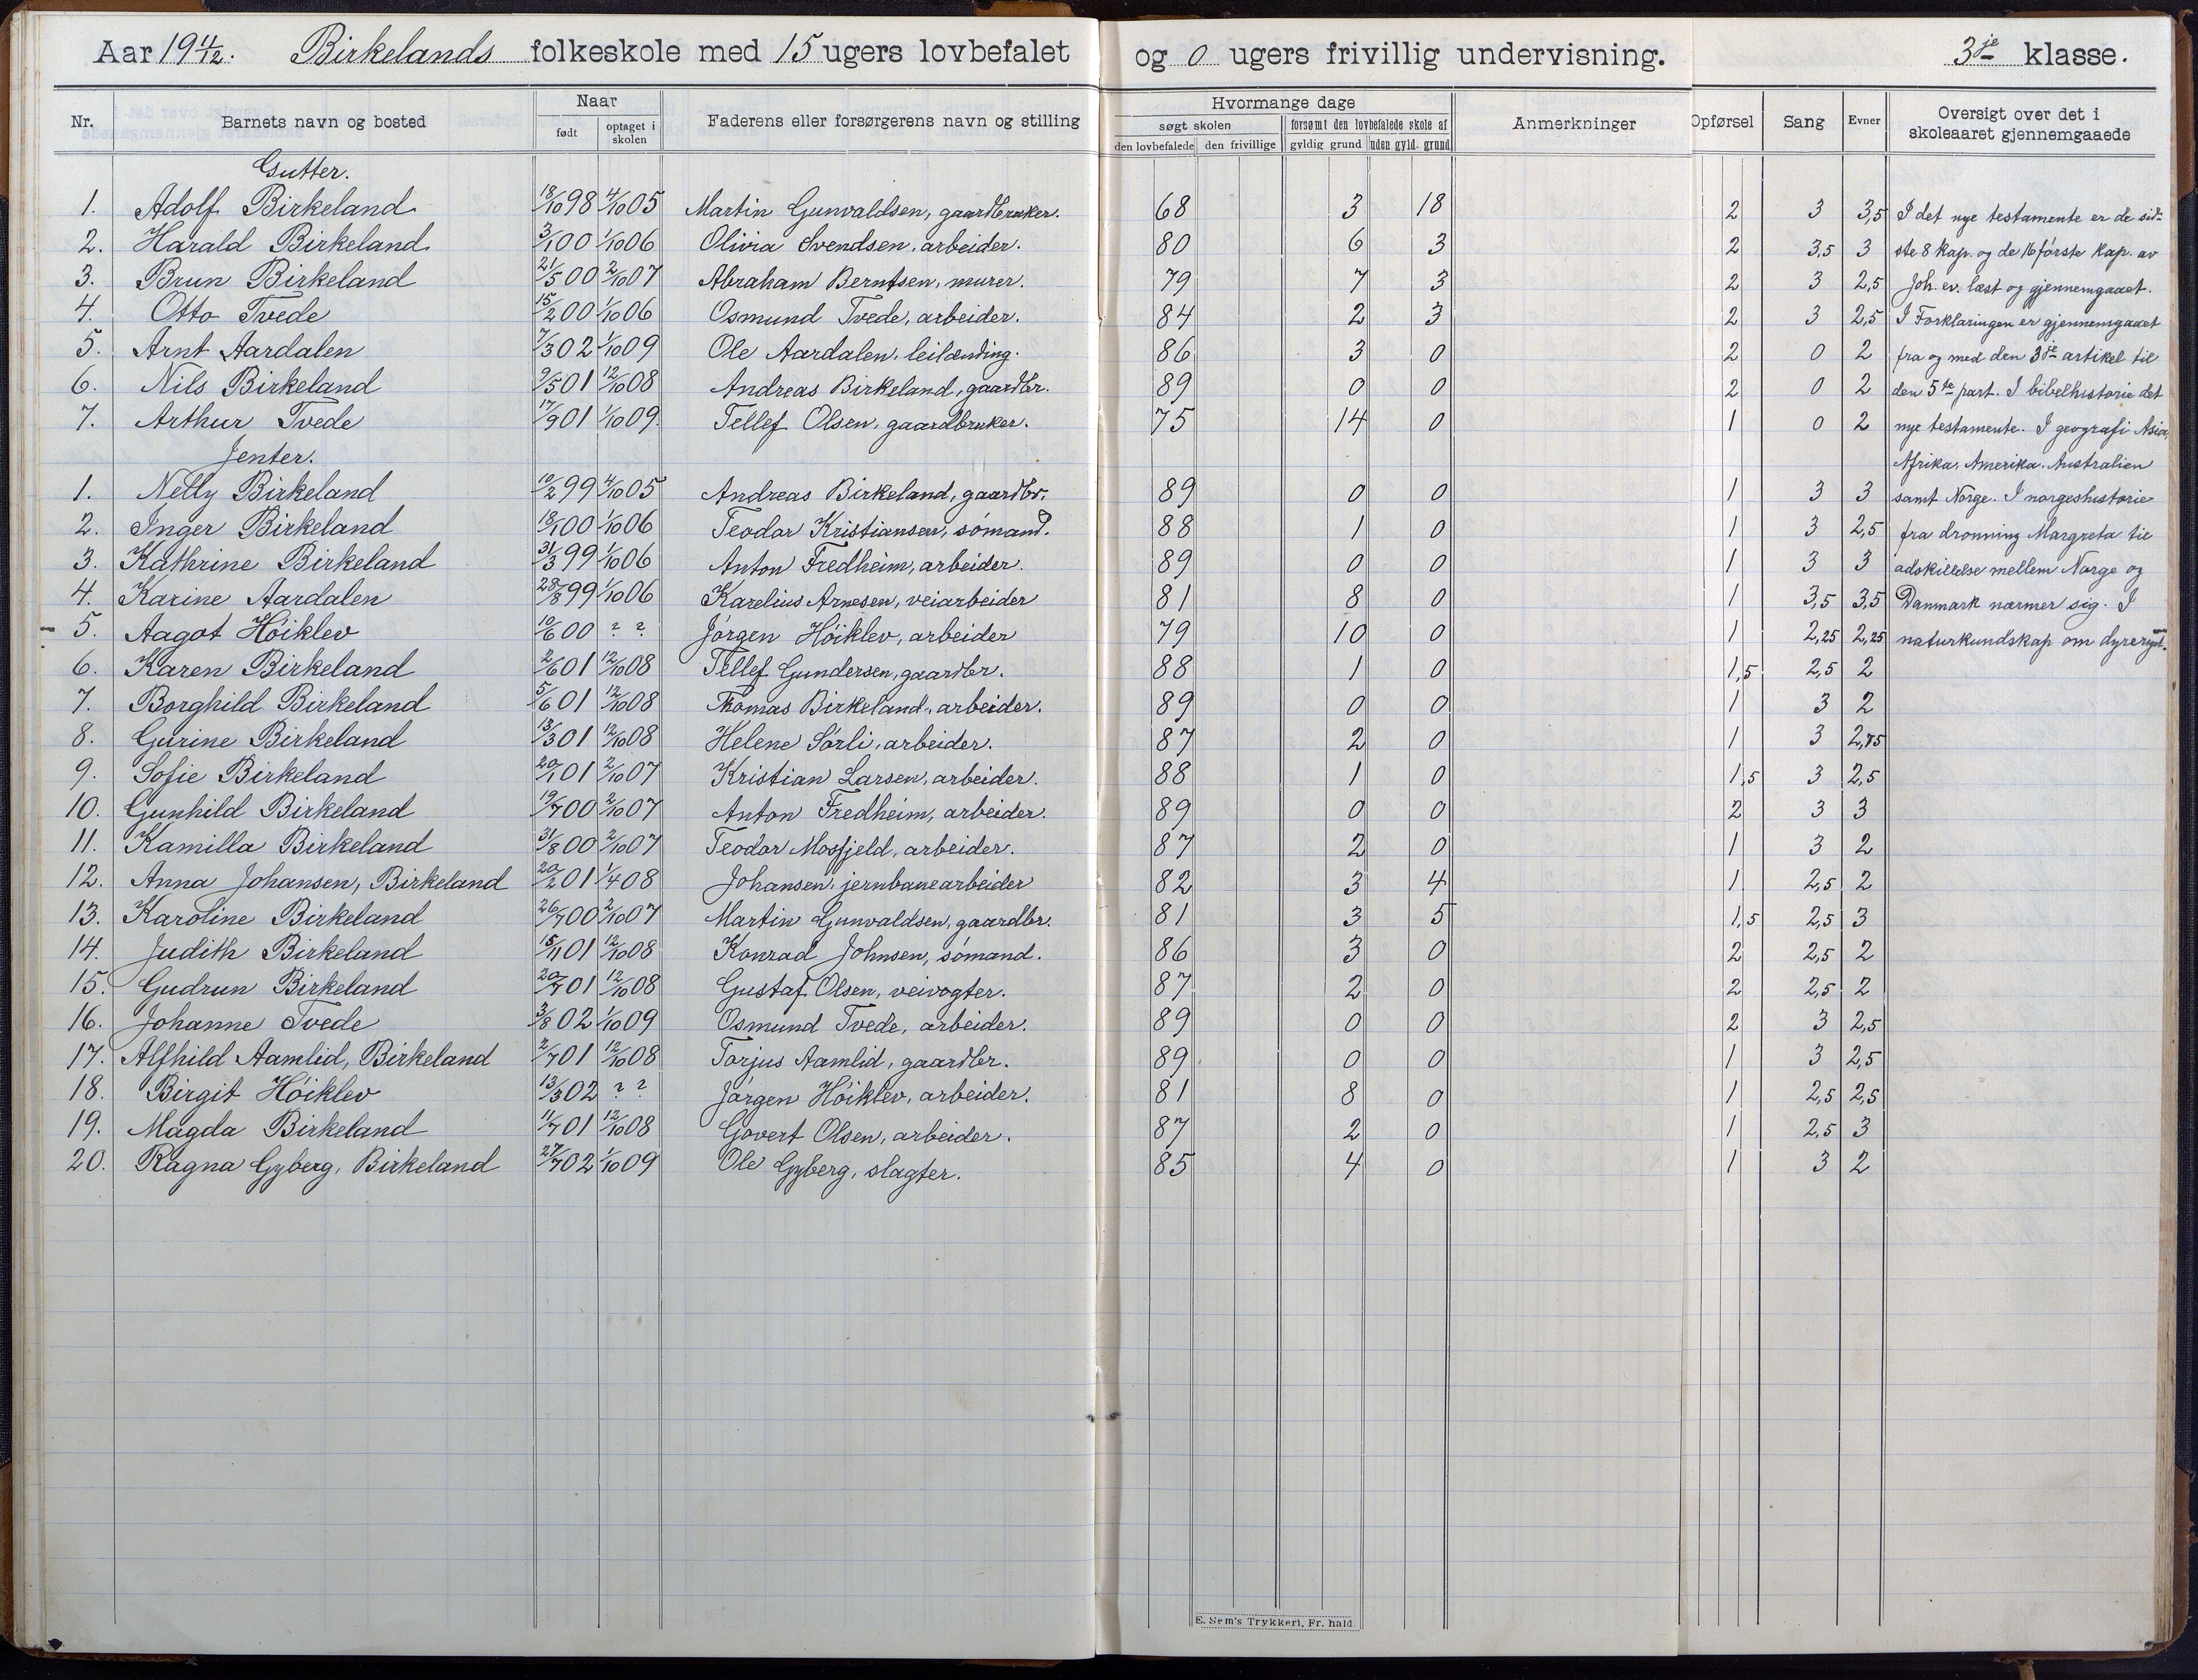 Aar 19 11/12. Birkelands folkeskole med 15 ugers lovbefalet og 0 ugers frivillig undervisning. 3je klasse.
Nr. Barnets navn og bosted Naar født optaget i skolen Faderens eller forsørgerens navn og stilling Hvormange dage søgt skolen den lovbefalede den frivillige forsømt den lovbefalede skole af gyldig grund uden gyld. grund Anmerkninger Opførsel Sang Evner Oversigt over det i skoleaaret gjennemgaaede
Gutter.
1. Adolf Birkeland 18/10 98 4/10 05 Martin Gunvaldsen, gaardbruker. 68 3 18 2 3 3,5 I det nye testamente er de sid-
2. Harald Birkeland 3/1 00 1/10 06 Olivia Svendsen, arbeider. 80 6 3 2 3,5 3 ste 8 kap. og de 16 første kap. av
3. Brun Birkeland 21/5 00 2/10 07 Abraham Berntsen, murer. 79 7 3 2 3 2,5 Joh. ev. læst og gjennemgaaet.
4. Otto Tvede 15/2 00 1/10 06 Osmund Tvede, arbeider. 84 2 3 2 3 2,5 I Forklaringen er gjennemgaaet
5. Arnt Aardalen 7/3 02 1/10 09 Ole Aardalen, leilænding. 86 3 0 2 0 2 fra og med den 3je artikel til
6. Nils Birkeland 9/5 01 12/10 08 Andreas Birkeland, gaardbr. 89 0 0 2 0 2 den 5te part. I bibelhistorie det
7. Arthur Tvede 17/9 01 1/10 09 Tellef Olsen, gaardbruker. 75 14 0 1 0 2 nye testamente. I geografi Asia,
Jenter. Afrika, Amerika, Australien
1. Nelly Birkeland 10/2 99 4/10 05 Andreas Birkeland, gaardbr. 89 0 0 1 3 3 samt Norge. I norgeshistorie
2. Inger Birkeland 18/1 00 1/10 06 Teodor Kristiansen, sømand. 88 1 0 1 3 2,5 fra dronning Margreta til
3. Kathrine Birkeland 31/3 99 1/10 06 Anton Fredheim, arbeider. 89 0 0 1 3 3 adskillelse mellem Norge og
4. Karine Aardalen 28/8 99 1/10 06 Karelius Arnesen, veiarbeider 81 8 0 1 3,5 3,5 Danmark nærmer sig. I
5. Aagot Höiklev 10/6 00 ? ? Jørgen Höiklev, arbeider 79 10 0 1 2,25 2,25 naturkundskap om dyreriget.
6. Karen Birkeland 2/6 01 12/10 08 Tellef Gundersen, gaardbr. 88 1 0 1,5 2,5 2
7. Borghild Birkeland 5/6 01 12/10 08 Thomas Birkeland, arbeider. 89 0 0 1 3 2
8. Gurine Birkeland 13/3 01 12/10 08 Helene Sørli, arbeider. 87 2 0 1 3 2,75
9. Sofie Birkeland 20/1 01 2/10 07 Kristian Larsen, arbeider. 88 1 0 1,5 3 2,5
10. Gunhild Birkeland 19/7 00 2/10 07 Anton Fredheim, arbeider. 89 0 0 2 3 3
11. Kamilla Birkeland 31/8 00 2/10 07 Teodor Mosfjeld, arbeider. 87 2 0 1 3 2
12. Anna Johansen, Birkeland 20/2 01 1/4 08 Johansen, jernbanearbeider 82 3 4 1 2,5 2
13. Karoline Birkeland 26/7 00 2/10 07 Martin Gunvaldsen, gaardbr. 81 3 5 1,5 2,5 3
14. Judith Birkeland 15/11 01 12/10 08 Konrad Johnsen, sømand. 86 3 0 2 2,5 2
15. Gudrun Birkeland 20/7 01 12/10 08 Gustaf Olsen, veivogter. 87 2 0 2 2,5 2
16. Johanne Tvede 3/8 02 1/10 09 Osmund Tvede, arbeider. 89 0 0 2 3 2,5
17. Alfhild Aamlid, Birkeland 2/7 01 12/10 08 Torjus Aamlid, gaardbr. 89 0 0 1 3 2,5
18. Birgit Höiklev 13/3 02 ? ? Jørgen Höiklev, arbeider. 81 8 0 1 2,5 2,5
19. Magda Birkeland 11/7 01 12/10 08 Govert Olsen, arbeider. 87 2 0 1 2,5 3
20. Ragna Gyberg, Birkeland 27/7 02 1/10 09 Ole Gyberg, slagter. 85 4 0 1 3 2
E. Sem's Trykkeri, Fr. hald